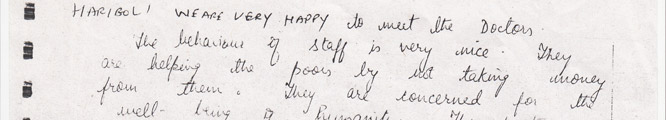 HARIBOL! WE ARE VERY HAPPY to meet the Doctors.
The behaviour of staff is very nice. They
are helping the poors by not taking money
from them. They are concerned for the
well-being of humanity.